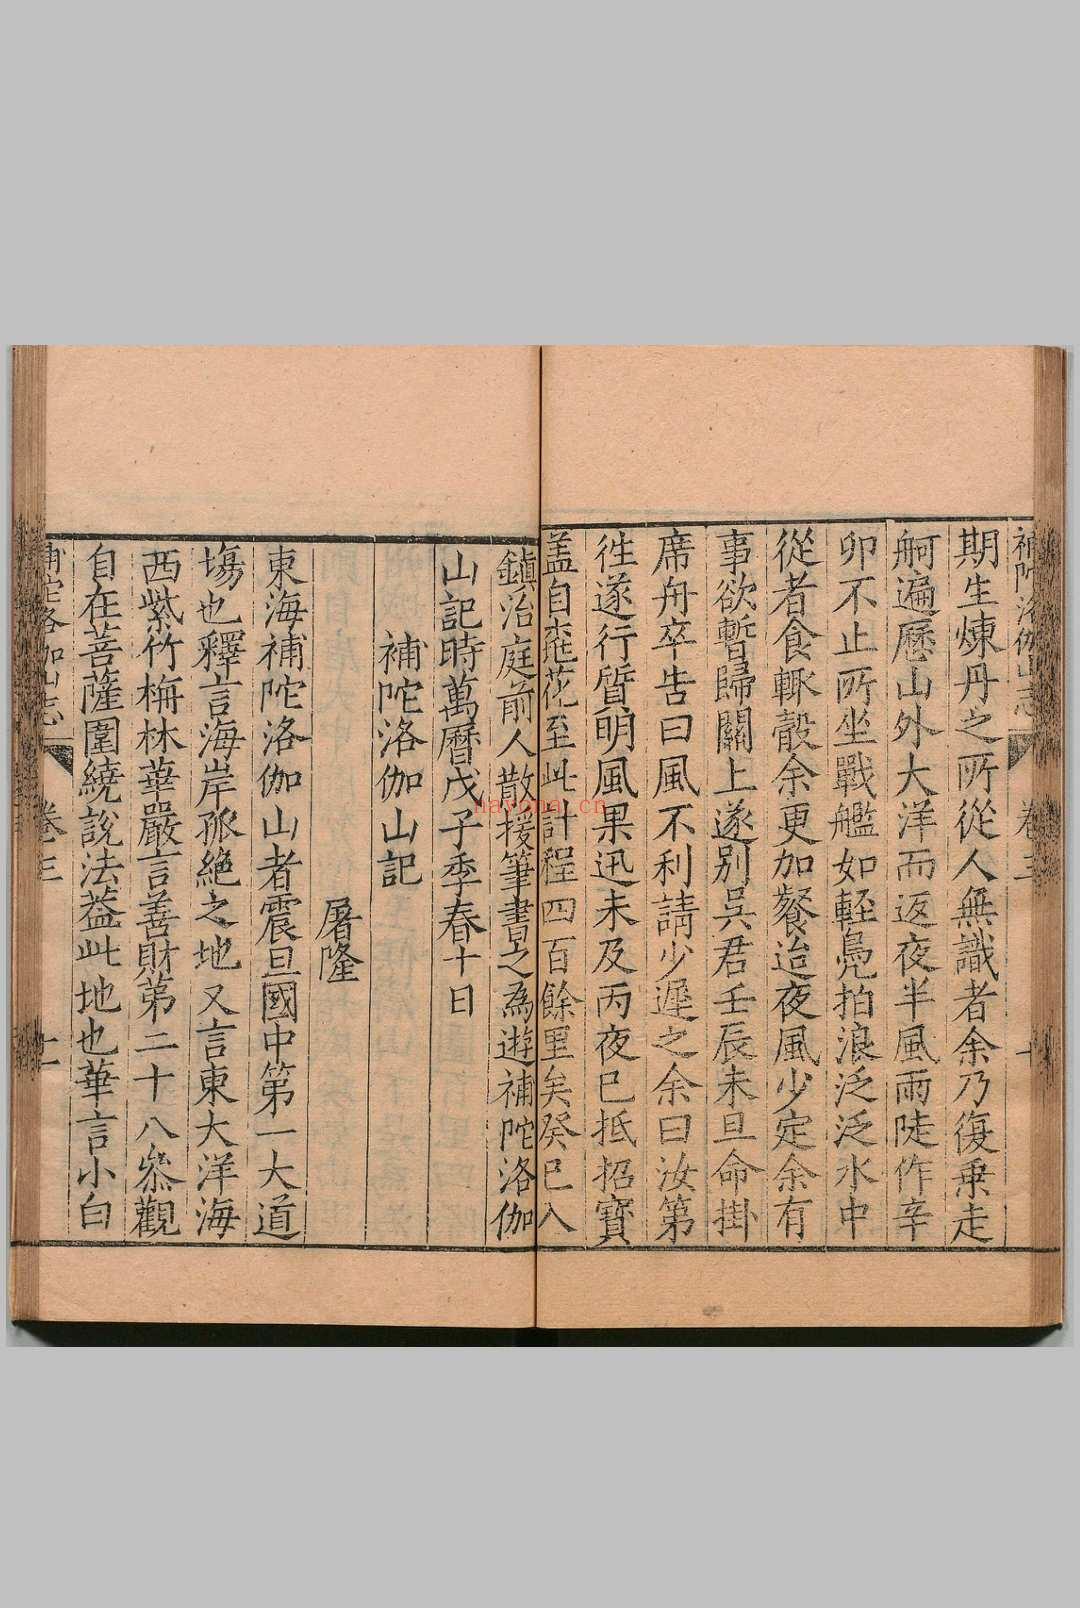 補陀洛伽山志 卷三
期生煉丹之所從人無識者余乃復乗走
舸遍歷山外大洋而返夜半風雨陡作辛
卯不止所坐戰艦如輕鳧拍浪泛泛水中
從者食輒殽余更加餐迨夜風少定余有
事欲暫歸關上遂别吳君壬辰未旦命掛
席舟卒告曰風不利請少遲之余曰汝第
徃遂行質明風果迅未及丙夜已抵招寶
盖自蓮花至此計程四百餘里矣癸巳入
鎮治庭前人散援筆書之為遊補陀洛伽
山記時萬曆戊子季春十日
補陀洛伽山記
屠隆
東海補陀洛伽山者震旦國中第一大道
塲也釋言海岸孤絶之地又言東大洋海
西紫竹栴林華嚴言善財第二十八叅觀
自在菩薩圍繞說法葢此地也華言小白
補陀洛伽山志 卷三
nayona.cn